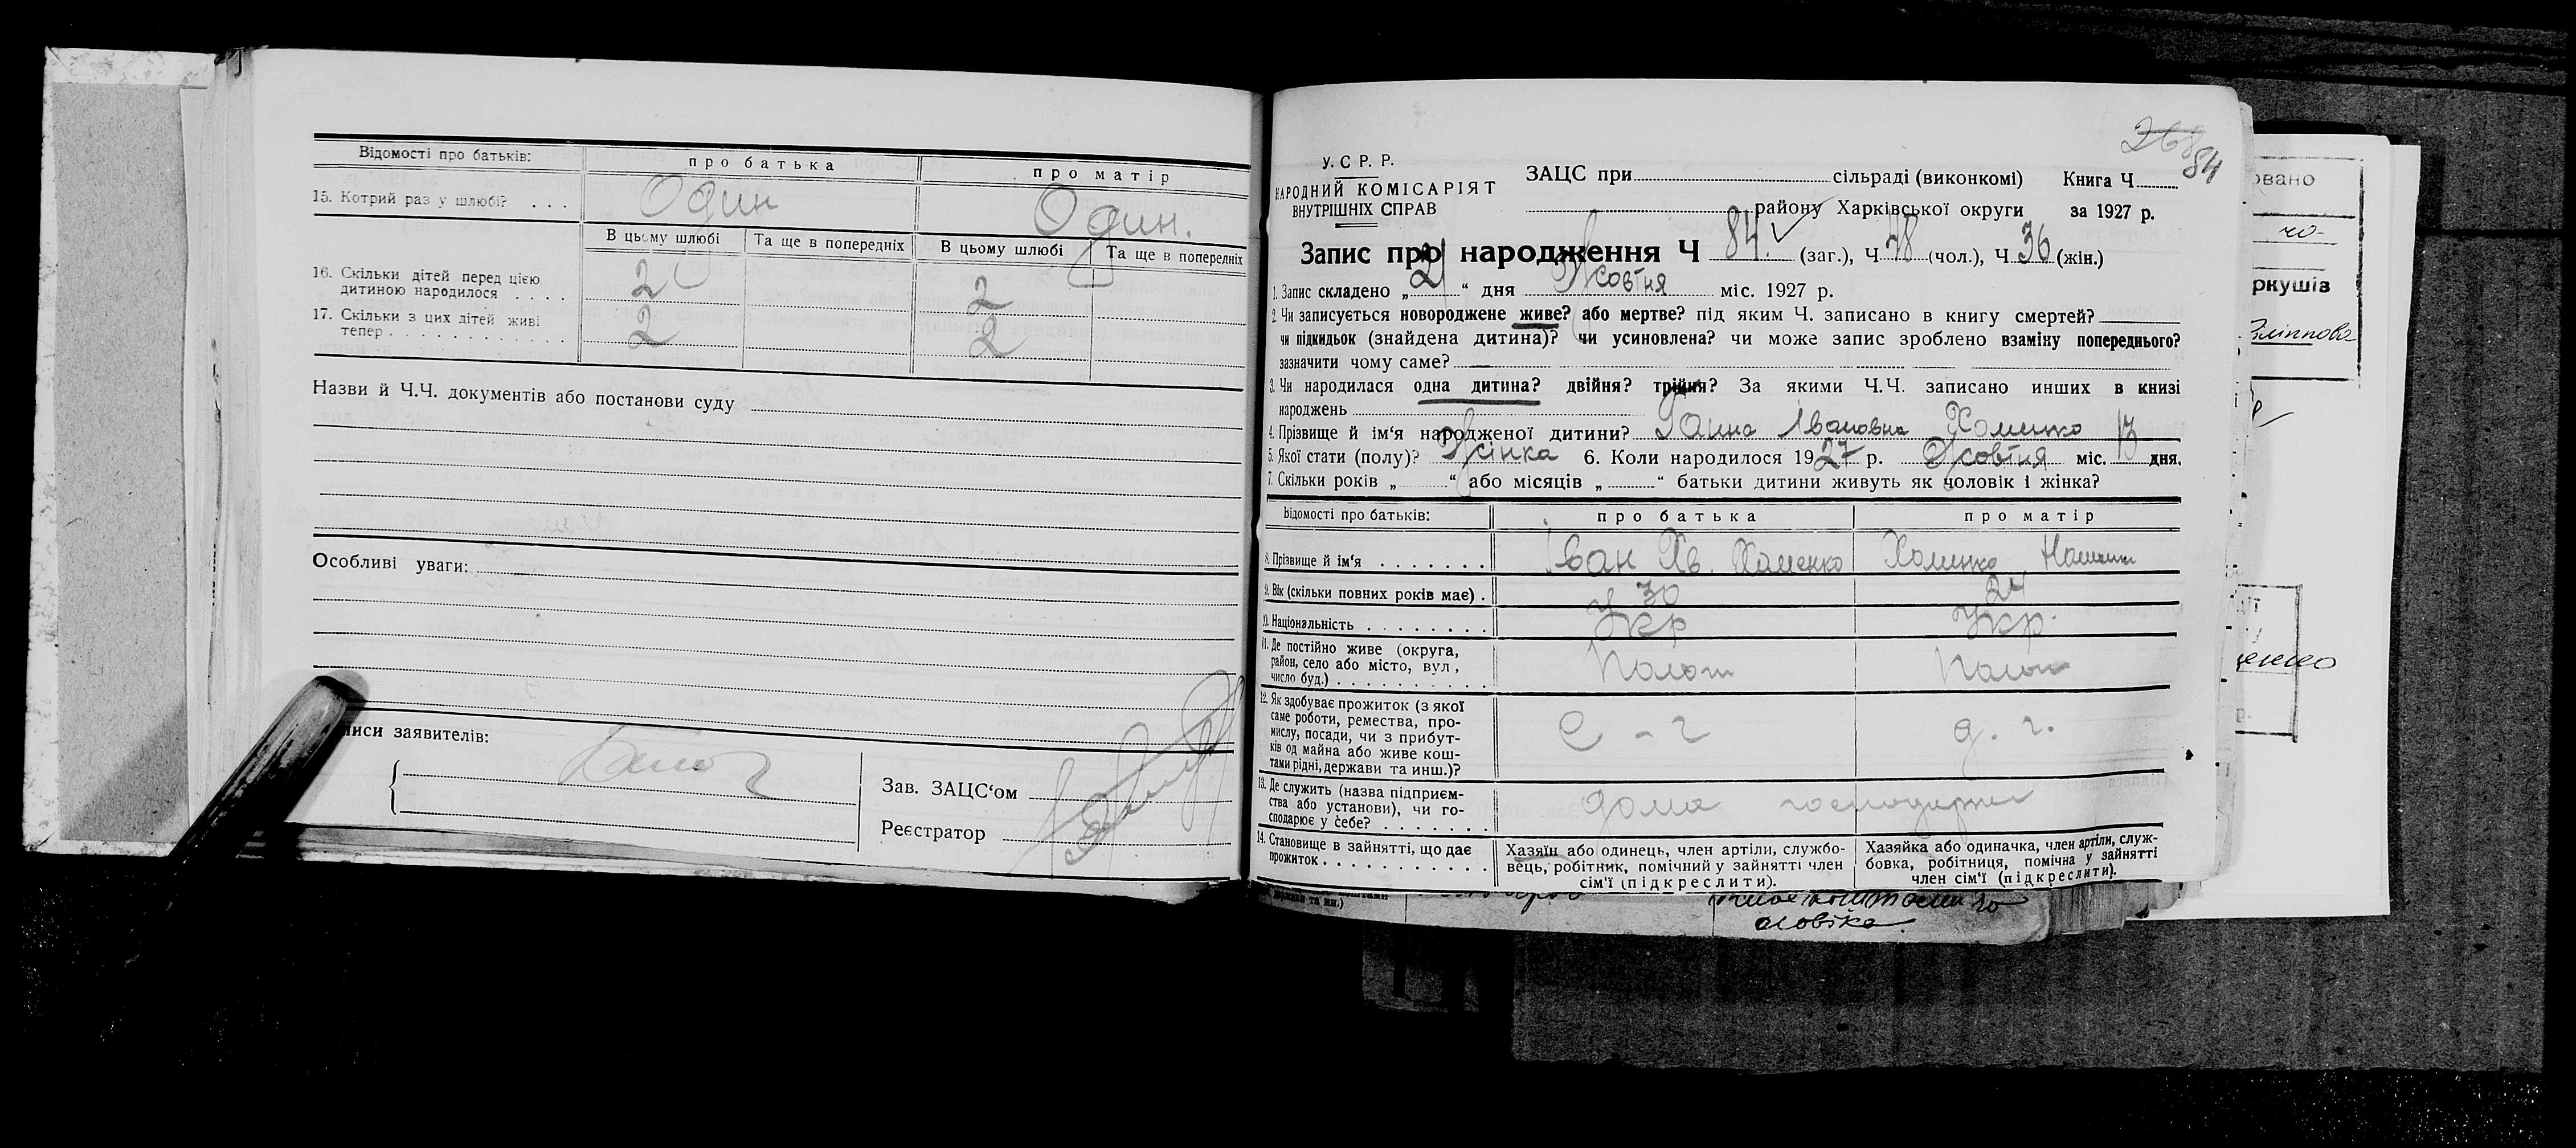 Відомості про батьків: про батька про матір
15. Котрий раз у шлюбі? . . . Один Один.
В цьому шлюбі Та ще в попередніх В цьому шлюбі Та ще в попередніх
16. Скільки дітей перед цією
дитиною народилося . . . . 2 2
17. Скільки з цих дітей живі
тепер . . . . . . . . . . . . . 2 2
Назви й Ч.Ч. документів або постанови суду
Особливі уваги:
иси заявителів:
Зав. ЗАЦС'ом
Реєстратор
268 84
У. С Р. Р.
НАРОДНИЙ КОМІСАРІЯТ
ВНУТРІШНІХ СПРАВ
ЗАЦС при сільраді (виконкомі) Книга Ч
району Харківської округи за 1927 р.
Запис про народження Ч 84. (заг.), Ч 48 (чол.), Ч 36 (жін.)
1. Запис складено „21“ дня Жовтня міс. 1927 р.
2. Чи записується новороджене живе? або мертве? під яким Ч. записано в книгу смертей?
чи підкидьок (знайдена дитина)? чи усиновлена? чи може запис зроблено взаміну попереднього?
зазначити чому саме?
3. Чи народилася одна дитина? двійня? трійня? За якими Ч.Ч. записано инших в книзі
народжень
4. Прізвище й ім'я народженої дитини? Ганна Івановна Хоменко
5. Якої стати (полу)? Жінка 6. Коли народилося 1927 р. Жовтня міс. 13 дня.
7. Скільки років „ “ або місяців „ “ батьки дитини живуть як чоловік і жінка?
Відомості про батьків: про батька про матір
8. Прізвище й ім'я . . . . . . . Іван Хв. Хоменко Хоменко
9. Вік (скільки повних років має) . 30 24
10. Національність . . . . . . . . Укр Укр.
11. Де постійно живе (округа,
район, село або місто, вул,
число буд.) . . . . . . . . . .
12. Як здобуває прожиток (з якої
саме роботи, ремества, про-
мислу, посади, чи з прибут-
ків од майна або живе кош-
тами рідні, держави та инш.)?
С - г д. г.
13. Де служить (назва підприєм-
ства або установи), чи го-
сподарює у себе? . . . . . . . дома
14. Становище в зайнятті, що дає
прожиток . . . . . . . . . .
Хазяїн або одинець, член артіли, службо-
вець, робітник, помічний у зайнятті член
сім'ї (підкреслити).
Хазяйка або одиначка, член артіли, служ-
бовка, робітниця, помічна у зайнятті
член сім'ї (підкреслити).
овано
ркушів